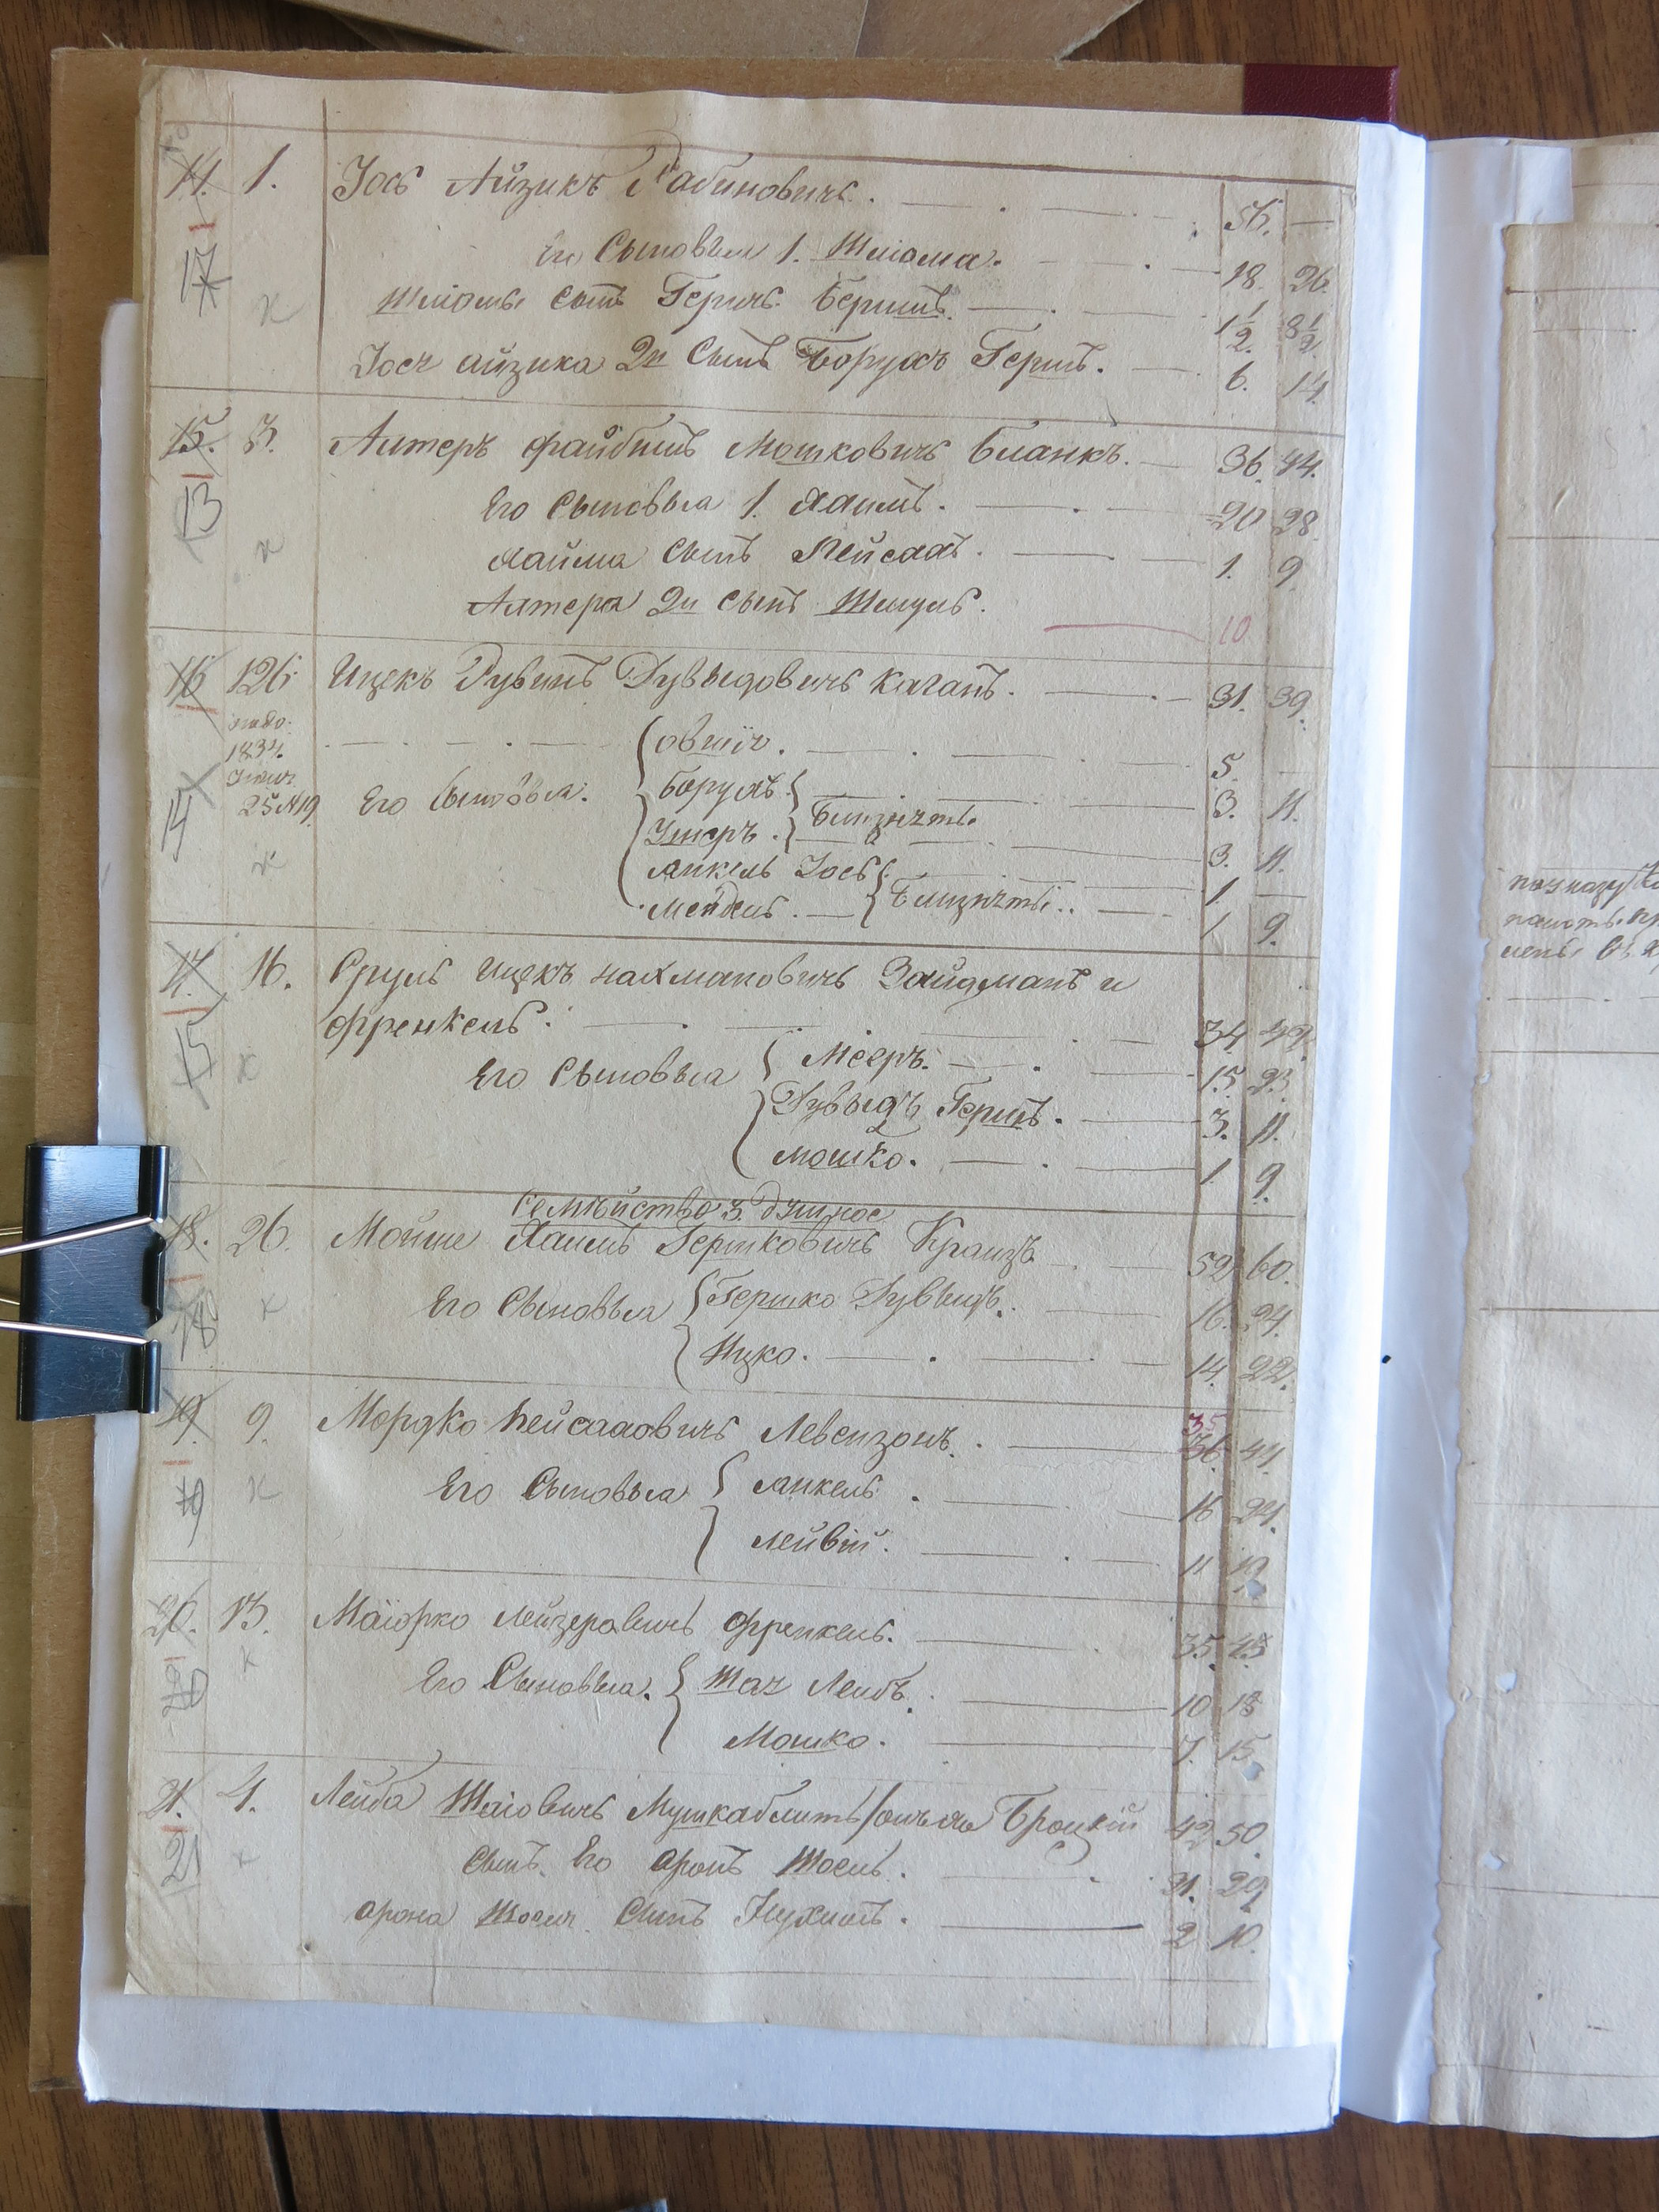 14. 1. Іось Айзикъ Рабиновичь. 56. —
17
Его Сыновья 1. Шліома. 18. 26.
Шліомы сынъ Герчь Бершъ. 1 1/2. 8 1/2
Іося айзика 2й Сынъ Борухъ Гершъ. 6. 14.
15. 3. Алтеръ Файбишъ Мошковичь Бланкъ. 36. 44.
13
Его Сыновья 1. Хаимъ. 20 28.
Хайма Сынъ Пейсахъ. 1. 9
Алтера 2й сынъ Шмуль. 10
16 126 Ицекъ Рувинъ Дувыдовичь Каганъ. 31. 39.
1834.
25 № 19.
14
Овшій. 5. —
Его Сыновья. Борухъ. Близняты. 3. 11.
Ушеръ. 3. 11.
Янкель Іось. Близняты.. 1 —
Мендель. 1 9.
17. 16. Сруль Ицекъ Нахмановичь Зайдманъ и
Френкель. 34 42.
15
Его Сыновья Мееръ. 15. 23.
Дувыдъ Гершъ. 3. 11.
Мошко. 1 9.
Семейство 3. душное
18. 26. Мойше Хаимъ Гершковичь Краизъ 52 60.
18
Его Сыновья Гершко Дувыдъ. 16. 24.
Ицко. 14. 22.
19. 9. Мордко Пейсаховичь Левензонъ. 35 36. 44.
19
Его Сыновья Янкель. 16 24.
Лейвій. 11 19
20. 13. Маіорко Лейзеровичь Френкель. 35. 43
20
Его Сыновья. Шая Лейбъ. 10 18
Мошко. 7. 15.
21. 4. Лейба Шаіовичь Мушкаблитъ Броцкій 42 50.
21
Сынъ Его Аронъ Іосель. 21. 29
Арона Сынъ Нухимъ. 2 10.